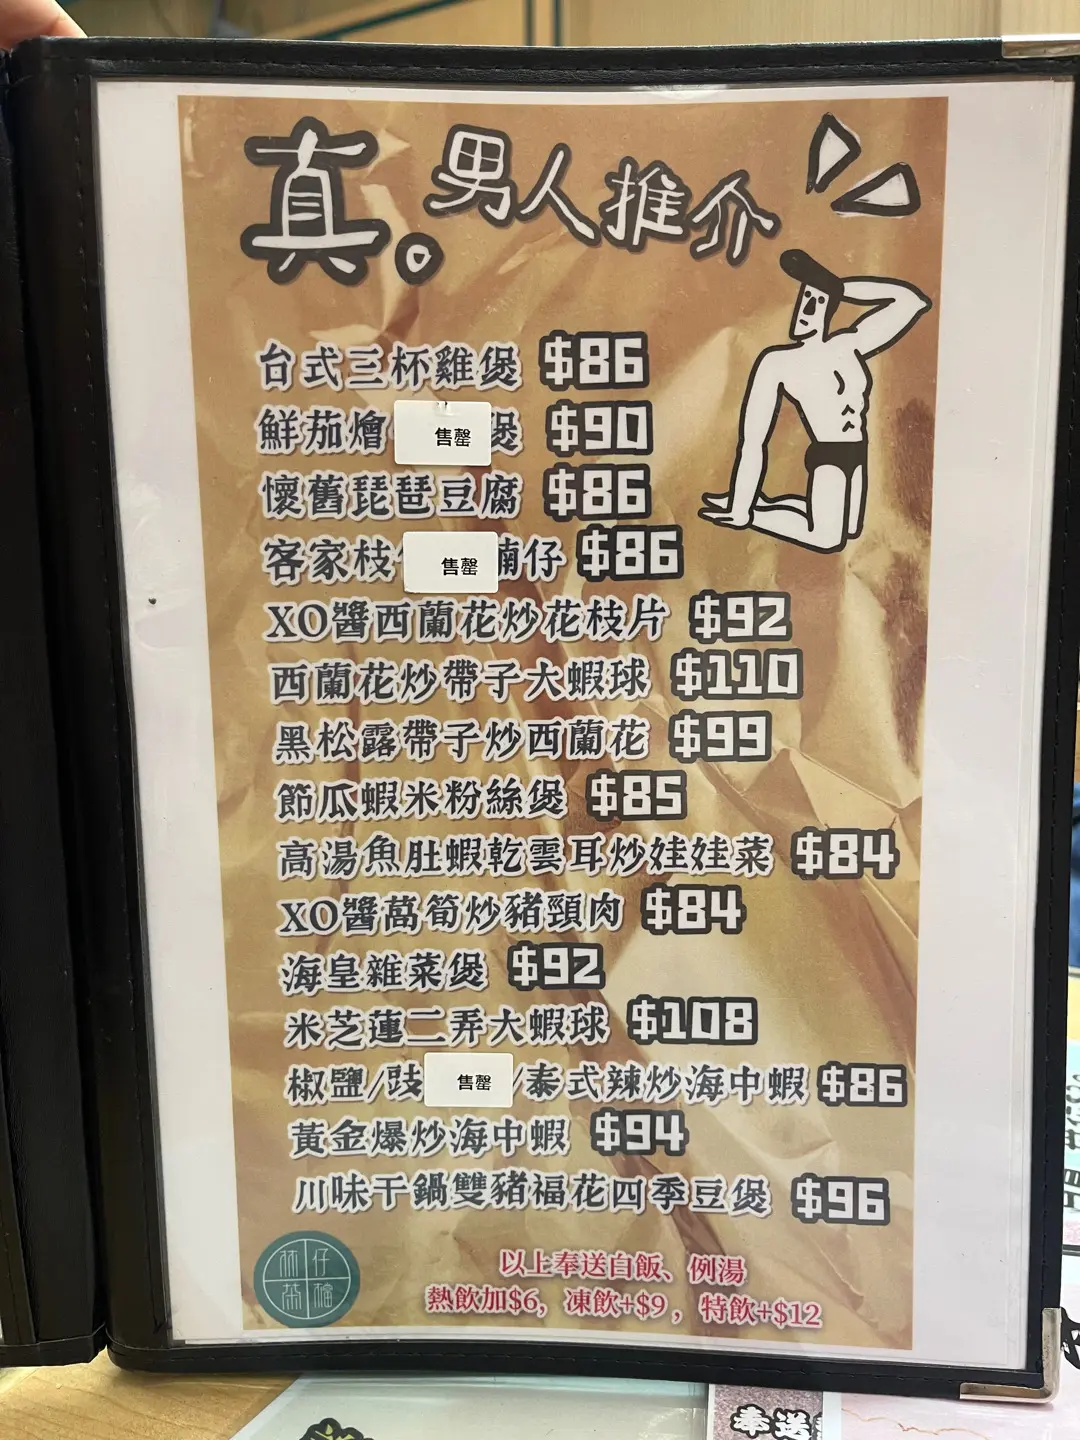 真。男人推介
台式三杯雞煲 $86
鮮茄燴 售罄 煲 $90
懷舊琵琶豆腐 $86
客家枝 售罄 腩仔 $86
XO醬西蘭花炒花枝片 $92
西蘭花炒帶子大蝦球 $110
黑松露帶子炒西蘭花 $99
節瓜蝦米粉絲煲 $85
高湯魚肚蝦乾雲耳炒娃娃菜 $84
XO醬萵筍炒豬頸肉 $84
海皇雜菜煲 $92
米芝蓮二弄大蝦球 $108
椒鹽/豉 售罄 /泰式辣炒海中蝦 $86
黃金爆炒海中蝦 $94
川味干鍋雙豬福花四季豆煲 $96
以上奉送白飯、例湯
熱飲加$6, 凍飲+$9, 特飲+$12
仔
茶檔
奉送